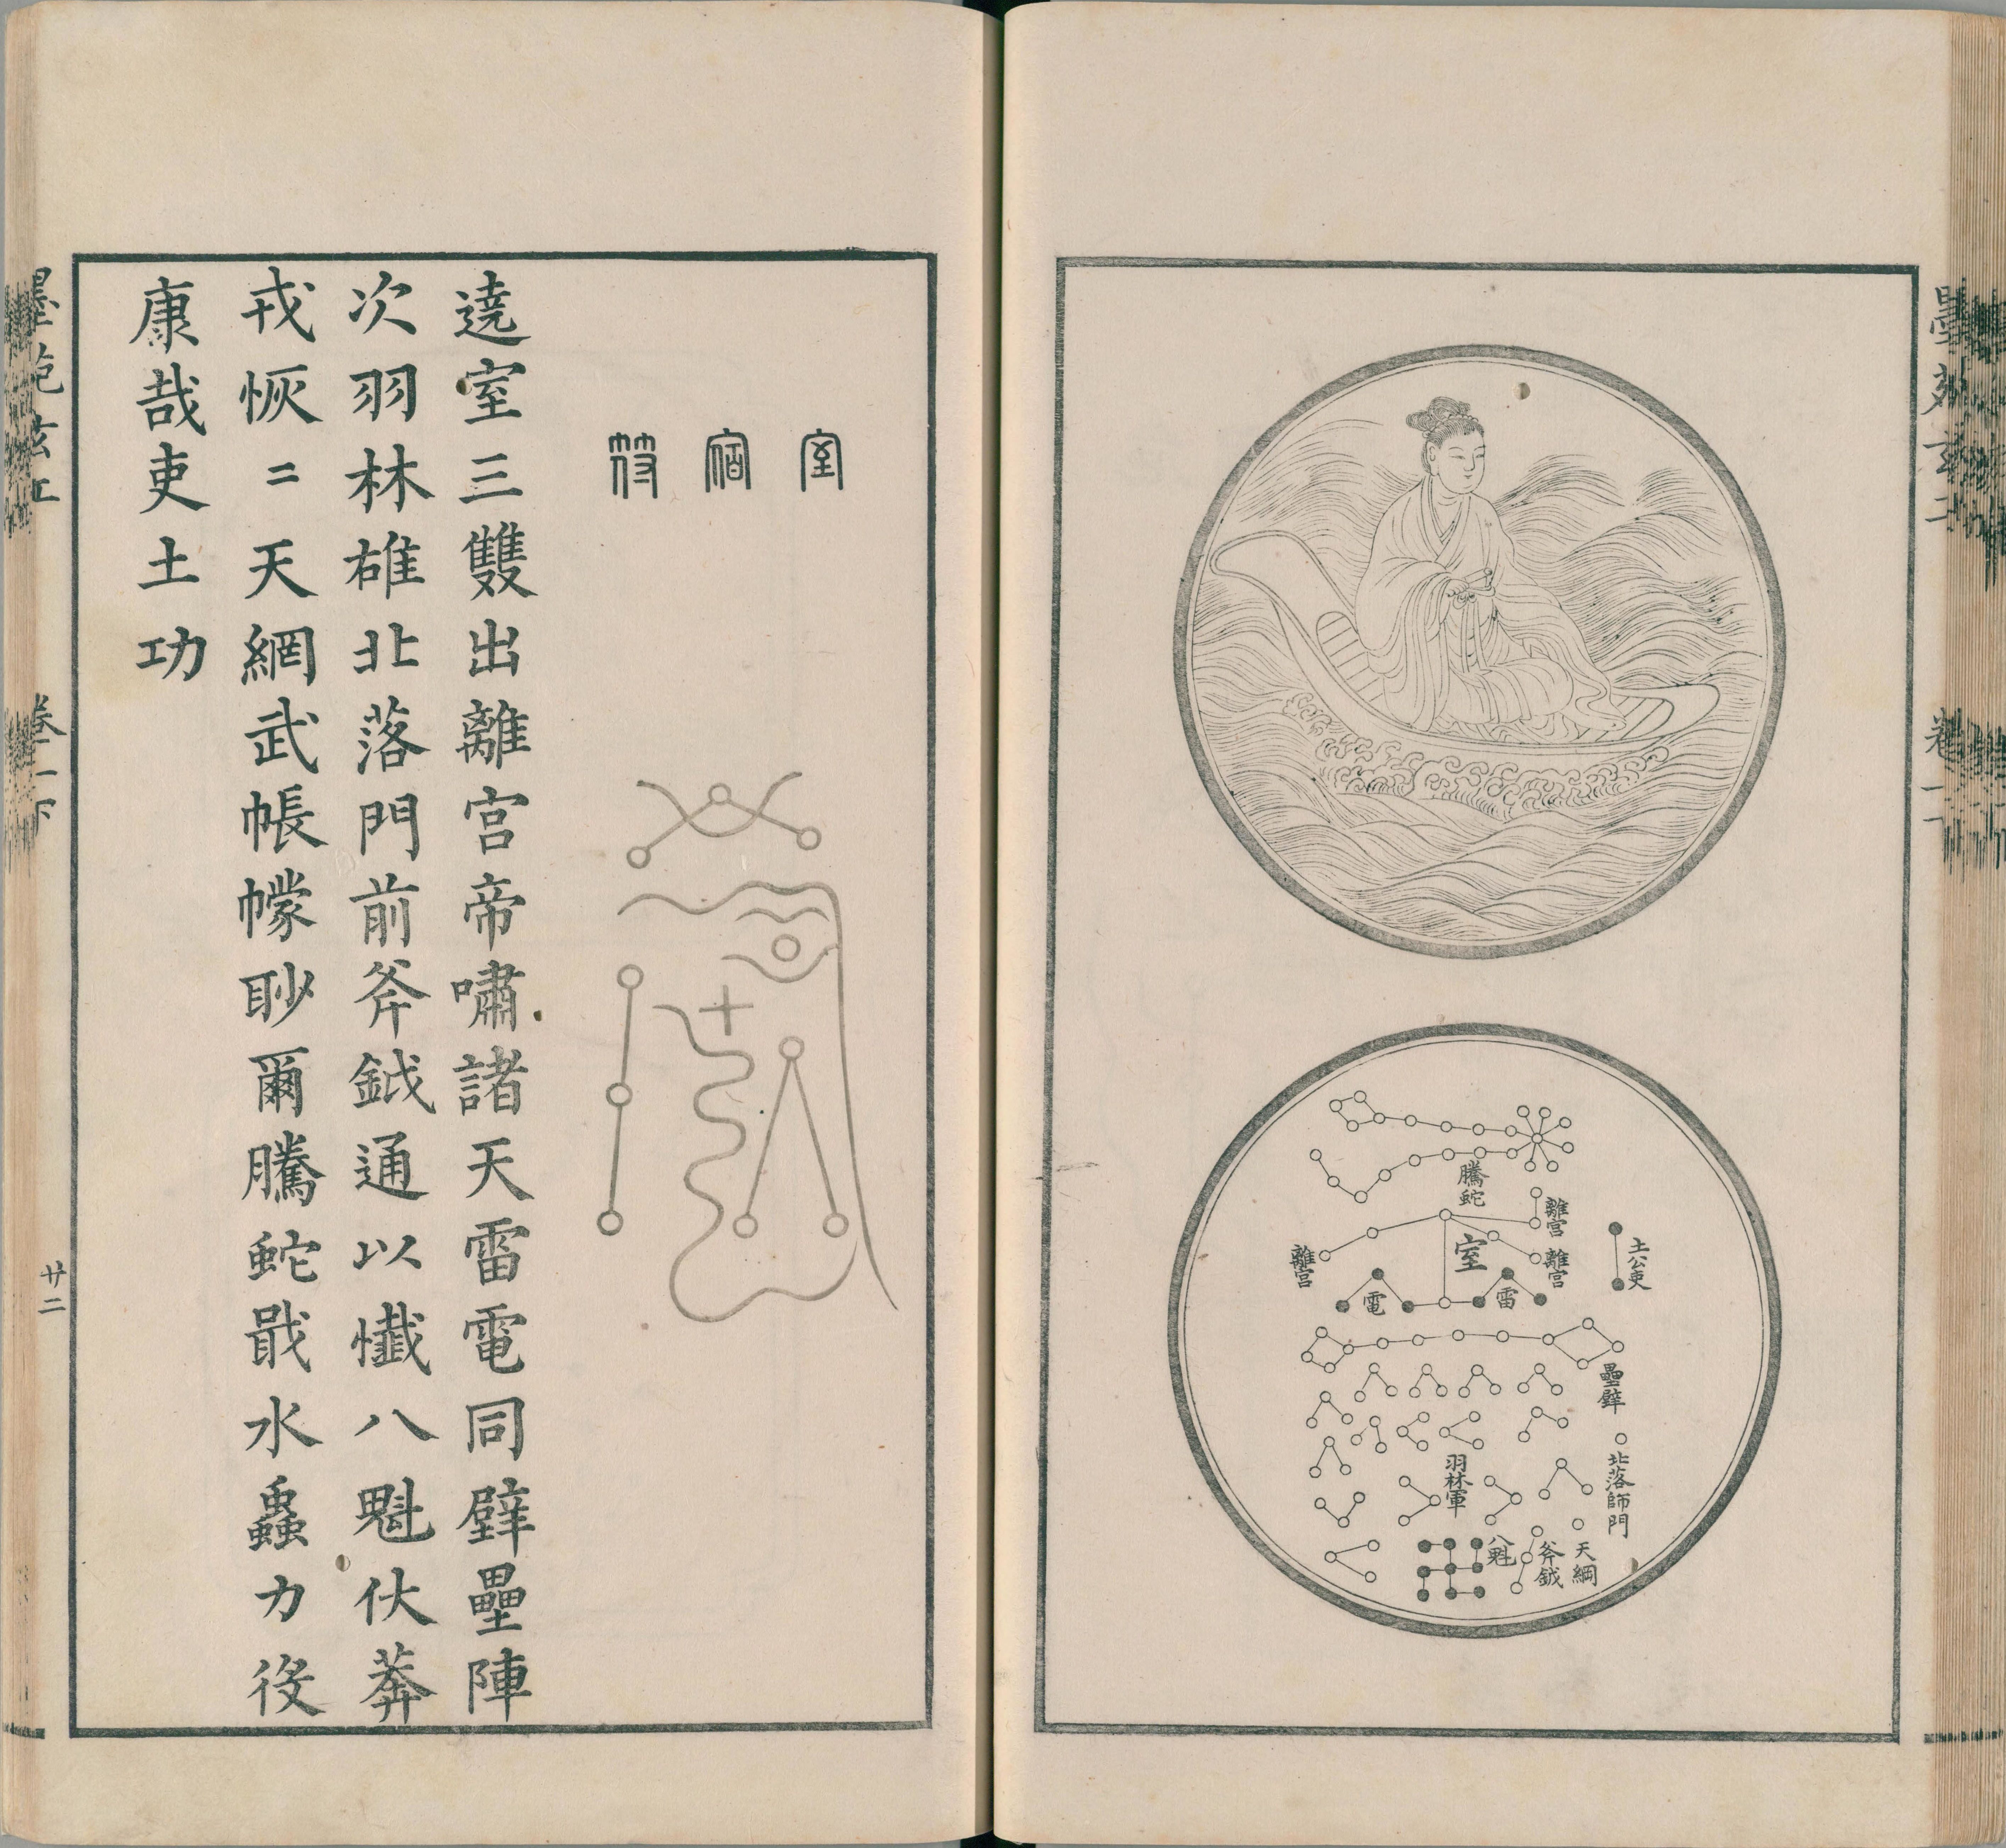 騰蛇
離宮
離宮
離宮
室
土公吏
電
雷
壘壁
北落師門
羽林軍
八魁
斧鉞
天綱
室宿符
遶室三雙出離宮帝嘯諸天雷電同壁壘陣
次羽林雄北落門前斧鉞通以懺八魁伏莽
戎恢〻天網武帳幪眇爾騰蛇戢水蟲力役
康哉吏土功
卷一下
廿二